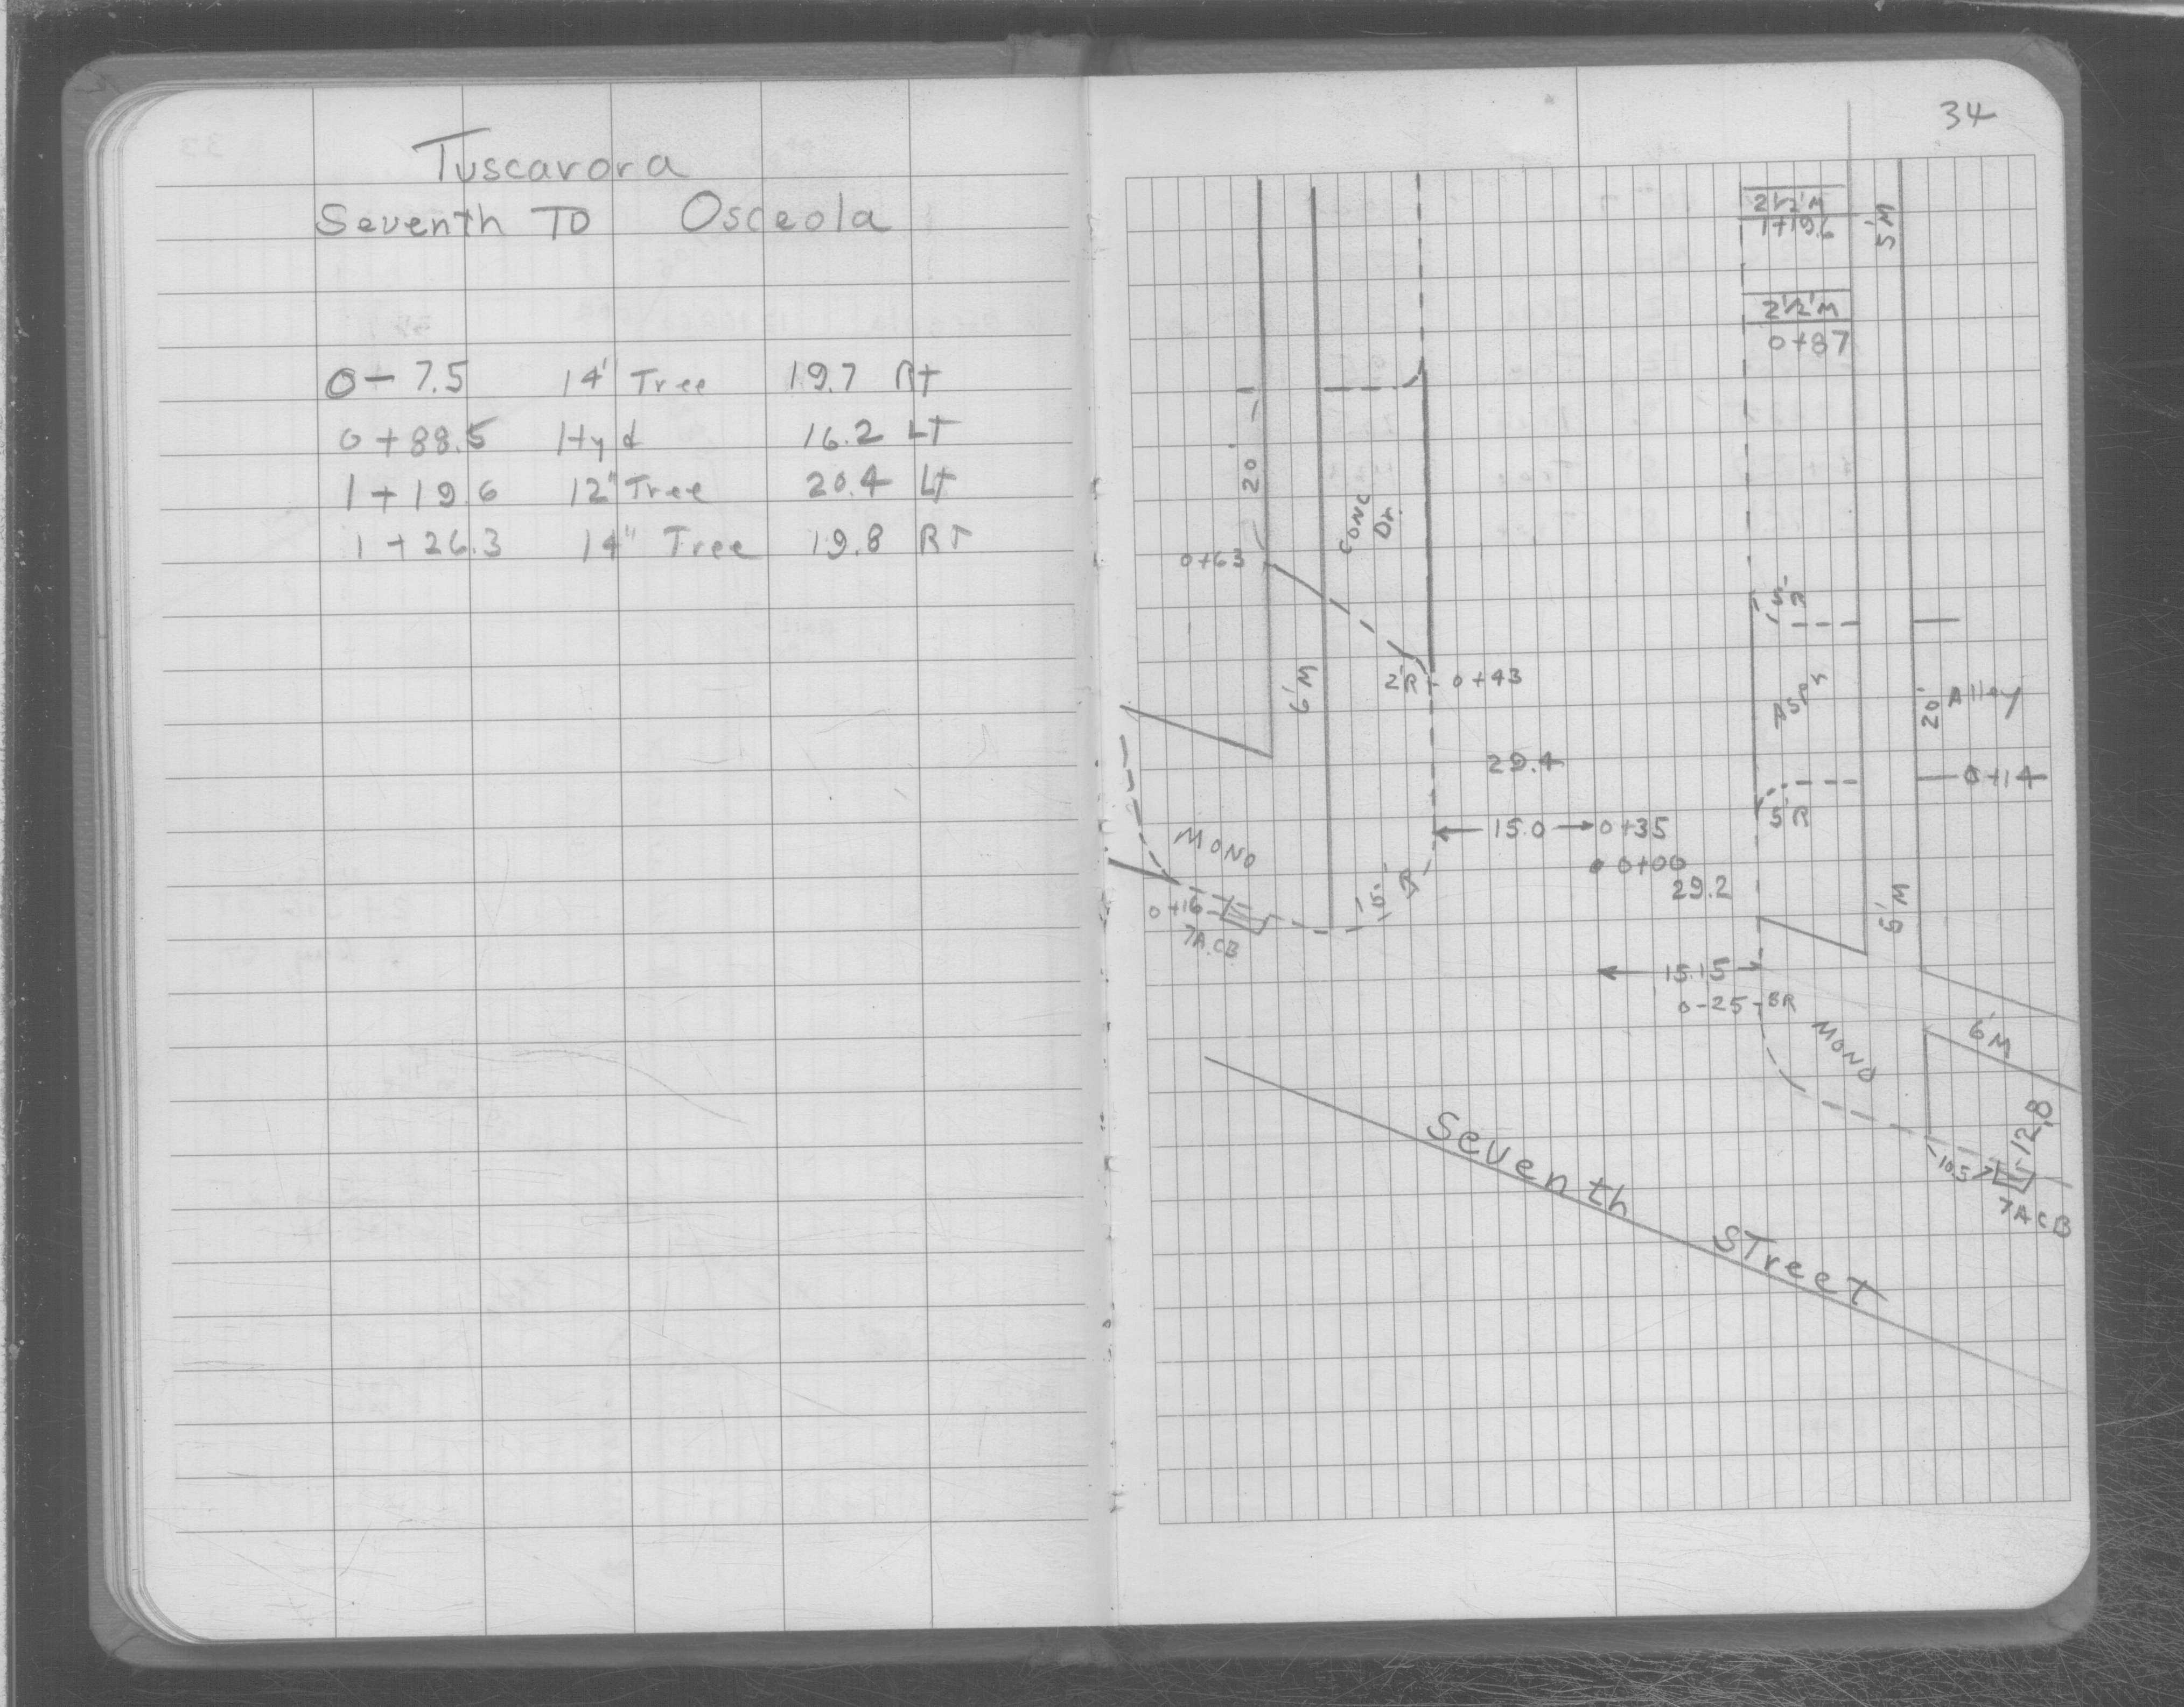 Tuscarora
Seventh To Osceola
0 - 7.5 14" Tree 19.7 RT
0 + 88.5 Hyd 16.2 LT
1 + 19.6 12" Tree 20.4 LT
1 + 26.3 14" Tree 19.8 RT
34
2 1/2' M
1+19.6
5' M
2 1/2' M
0+87
20'
CONC
Dr.
0+63
5' R
6' M
2' R
0+43
20' Alley
29.4
0+14
5' R
15.0
0+35
MONO
0+00
29.2
15' R
5' M
0+16
7A.CB
15.15
0-25
8R
MONO
6' M
12.8
10.5
7ACB
Seventh Street